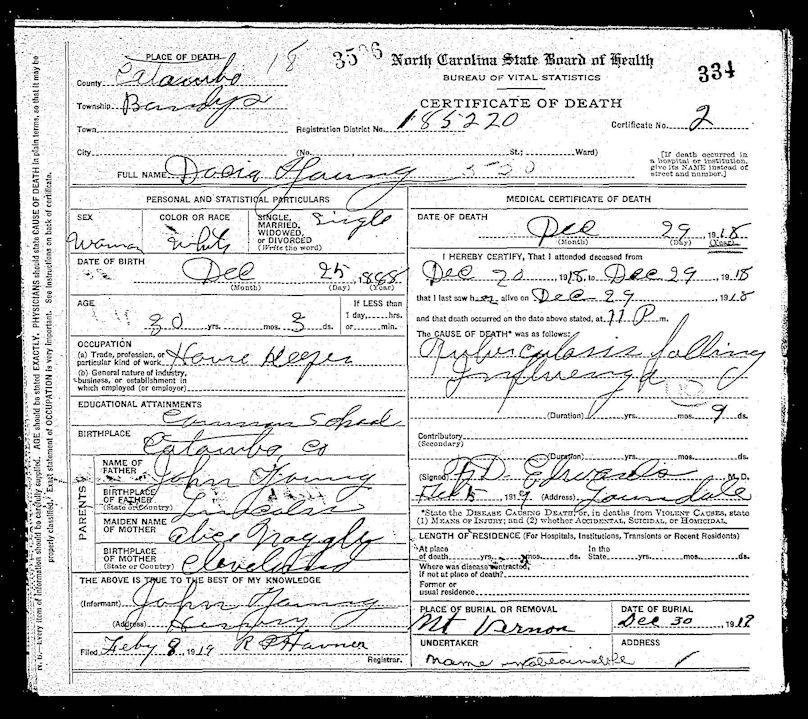 PLACE OF DEATH
18
3506
North Carolina State Board of Health
BUREAU OF VITAL STATISTICS
334
County Catawba
Township Bandys
CERTIFICATE OF DEATH
Town
Registration District No. 185220
Certificate No. 2
City (No. St.; Ward)
[If death occurred in a hospital or institution, give its NAME instead of street and number.]
FULL NAME Young
PERSONAL AND STATISTICAL PARTICULARS
SEX
Woman
COLOR OR RACE
White
SINGLE, MARRIED, WIDOWED, or DIVORCED (Write the word)
Single
DATE OF BIRTH
Dec 25, 1888
(Month) (Day) (Year)
AGE
30 yrs. mos. 3 ds.
If LESS than 1 day, hrs. or min.
OCCUPATION
(a) Trade, profession, or particular kind of work House Keeper
(b) General nature of industry, business, or establishment in which employed (or employer)
EDUCATIONAL ATTAINMENTS
Common School
BIRTHPLACE
Catawba Co
PARENTS
NAME OF FATHER
John Young
BIRTHPLACE OF FATHER (State or Country)
Lincoln
MAIDEN NAME OF MOTHER
Alice
BIRTHPLACE OF MOTHER (State or Country)
Cleveland
THE ABOVE IS TRUE TO THE BEST OF MY KNOWLEDGE
(Informant) John Young
(Address)
Filed Feby 8 1919
Registrar.
MEDICAL CERTIFICATE OF DEATH
DATE OF DEATH
Dec 29 1918
(Month) (Day) (Year)
I HEREBY CERTIFY, That I attended deceased from
Dec 20 1918, to Dec 29 1918
that I last saw her alive on Dec 29 1918
and that death occurred on the date above stated, at 11 P m.
The CAUSE OF DEATH* was as follows:
Tuberculosis following
Influenza
(Duration) yrs. mos. 9 ds.
Contributory
(Secondary)
(Duration) yrs. mos. ds.
(Signed) Edwards M. D.
1919 (Address)
*State the DISEASE CAUSING DEATH, or, in deaths from VIOLENT CAUSES, state (1) MEANS OF INJURY; and (2) whether ACCIDENTAL, SUICIDAL, or HOMICIDAL.
LENGTH OF RESIDENCE (For Hospitals, Institutions, Transients or Recent Residents)
At place of death yrs. mos. ds.
In the State yrs. mos. ds.
Where was disease contracted, if not at place of death?
Former or usual residence
PLACE OF BURIAL OR REMOVAL
Mt Vernon
DATE OF BURIAL
Dec 30 1918
UNDERTAKER
name
ADDRESS
N. B.—Every item of information should be carefully supplied. AGE should be stated EXACTLY. PHYSICIANS should state CAUSE OF DEATH in plain terms, so that it may be
properly classified. Exact statement of OCCUPATION is very important. See instructions on back of certificate.